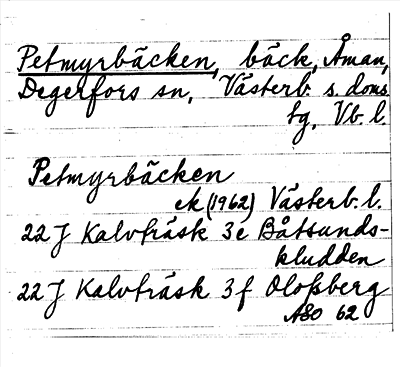 Petmyrbäcken, bäck, Åman,
Degerfors sn, Västerb. s. doms.
tg, Vb. l.
Petmyrbäcken
ek (1962) Västerb. l.
22 J Kalvträsk 3e Båtsunds-
kludden
22 J Kalvträsk 3f Olofsberg
ASO 62